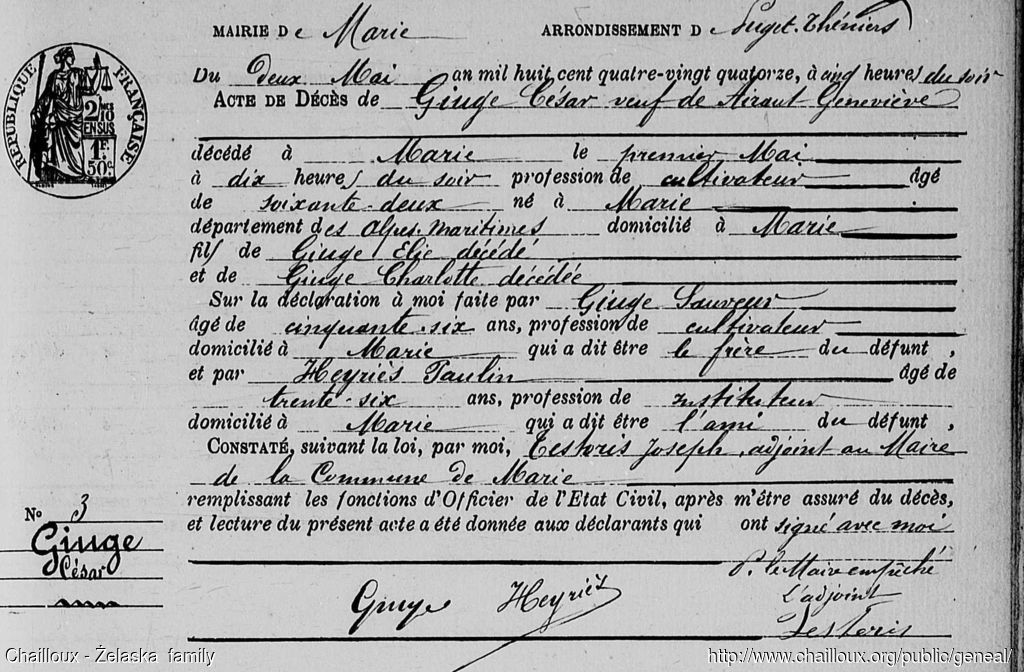 MAIRIE De Marie ARRONDISSEMENT D e Puget-Théniers
RÉPUBLIQUE FRANÇAISE
2/10 EN SUS
1F. 50c.
Du deux Mai an mil huit cent quatre-vingt quatorze, à cinq heures du soir
ACTE DE DÉCÈS de Giuge César veuf de Airaut Geneviève
décédé à Marie le premier Mai
à dix heures du soir profession de cultivateur âgé
de soixante-deux né à Marie
département des Alpes-Maritimes domicilié à Marie
fils de Giuge Elie décédé
et de Giuge Charlotte décédée
Sur la déclaration à moi faite par Giuge Sauveur
âgé de cinquante-six ans, profession de cultivateur
domicilié à Marie qui a dit être le frère du défunt,
et par Heyriès Paulin âgé de
trente-six ans, profession de instituteur
domicilié à Marie qui a dit être l'ami du défunt,
CONSTATÉ, suivant la loi, par moi, Testoris Joseph, adjoint au Maire
de la Commune de Marie
remplissant les fonctions d'Officier de l'Etat Civil, après m'être assuré du décès,
et lecture du présent acte a été donnée aux déclarants qui ont signé avec moi
No 3
Giuge
César
P. le Maire empêché
L'adjoint
Giuge Heyriès Testoris
Chailloux - Želaska family http://www.chailloux.org/public/geneal/